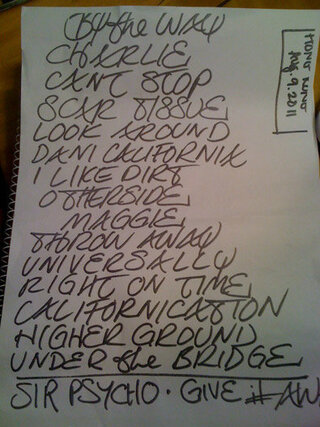 By the WAY
CHARLIE
CANT STOP
SCAR TISSUE
LOOK AROUND
DANI CALIFORNIA
I LIKE DIRT
OTHERSIDE
MAGGIE
THROW AWAY
UNIVERSALLY
RIGHT ON TIME
CALIFORNICATION
HIGHER GROUND
UNDER the BRIDGE
SIR PSYCHO · GIVE it AW
Aug. 9. 2011